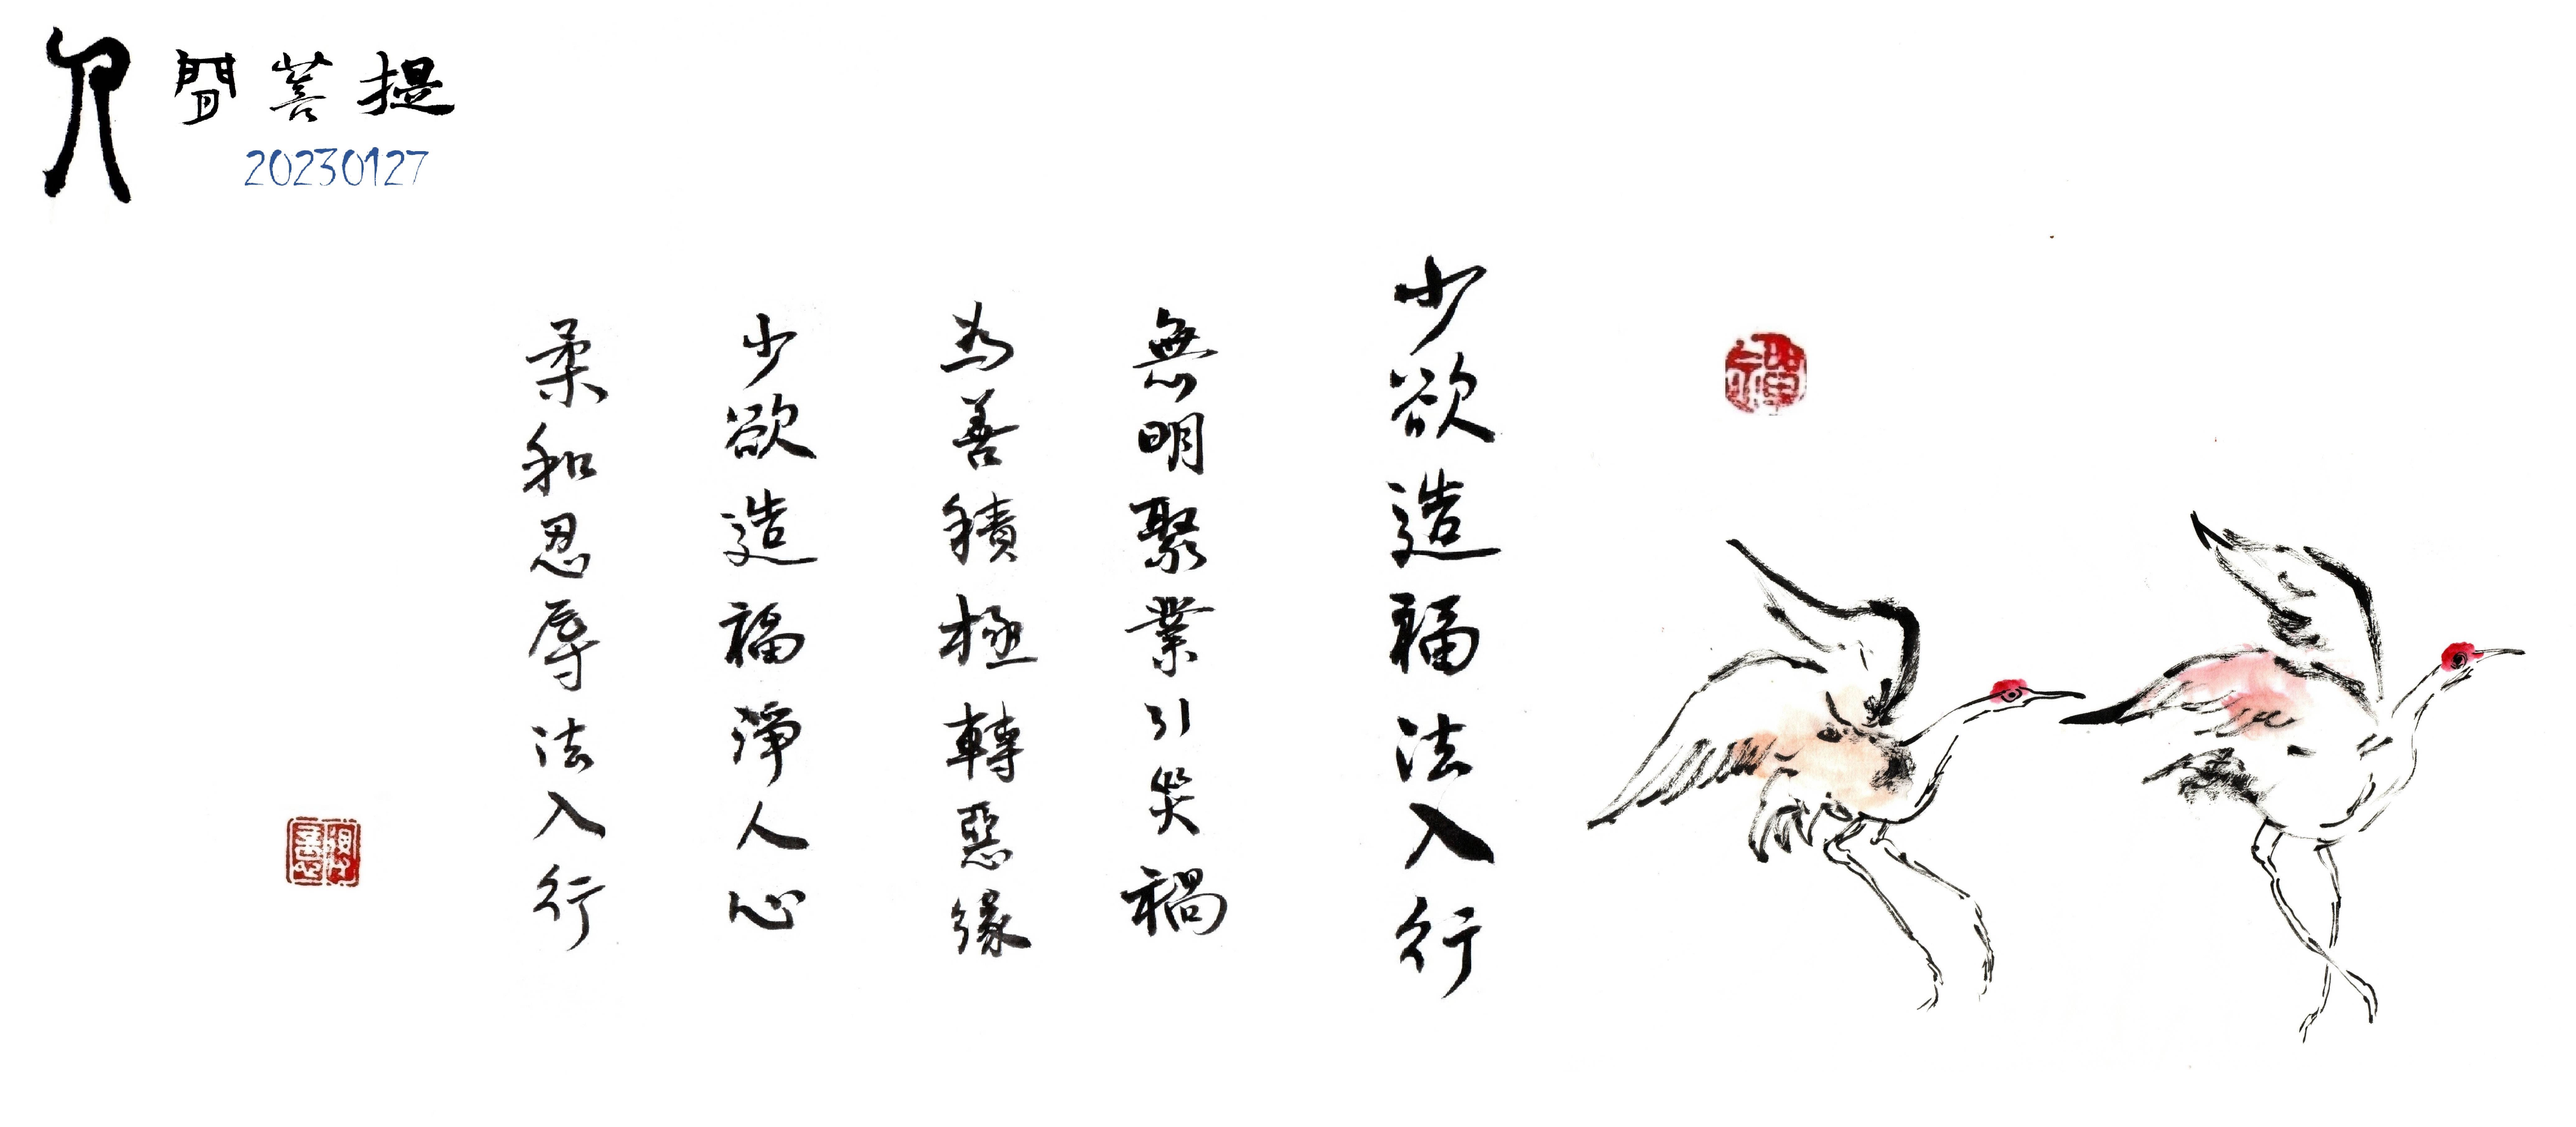 人間菩提
20230127
少欲造福法入行
無明聚業引災禍
為善積極轉惡緣
少欲造福淨人心
柔和忍辱法入行